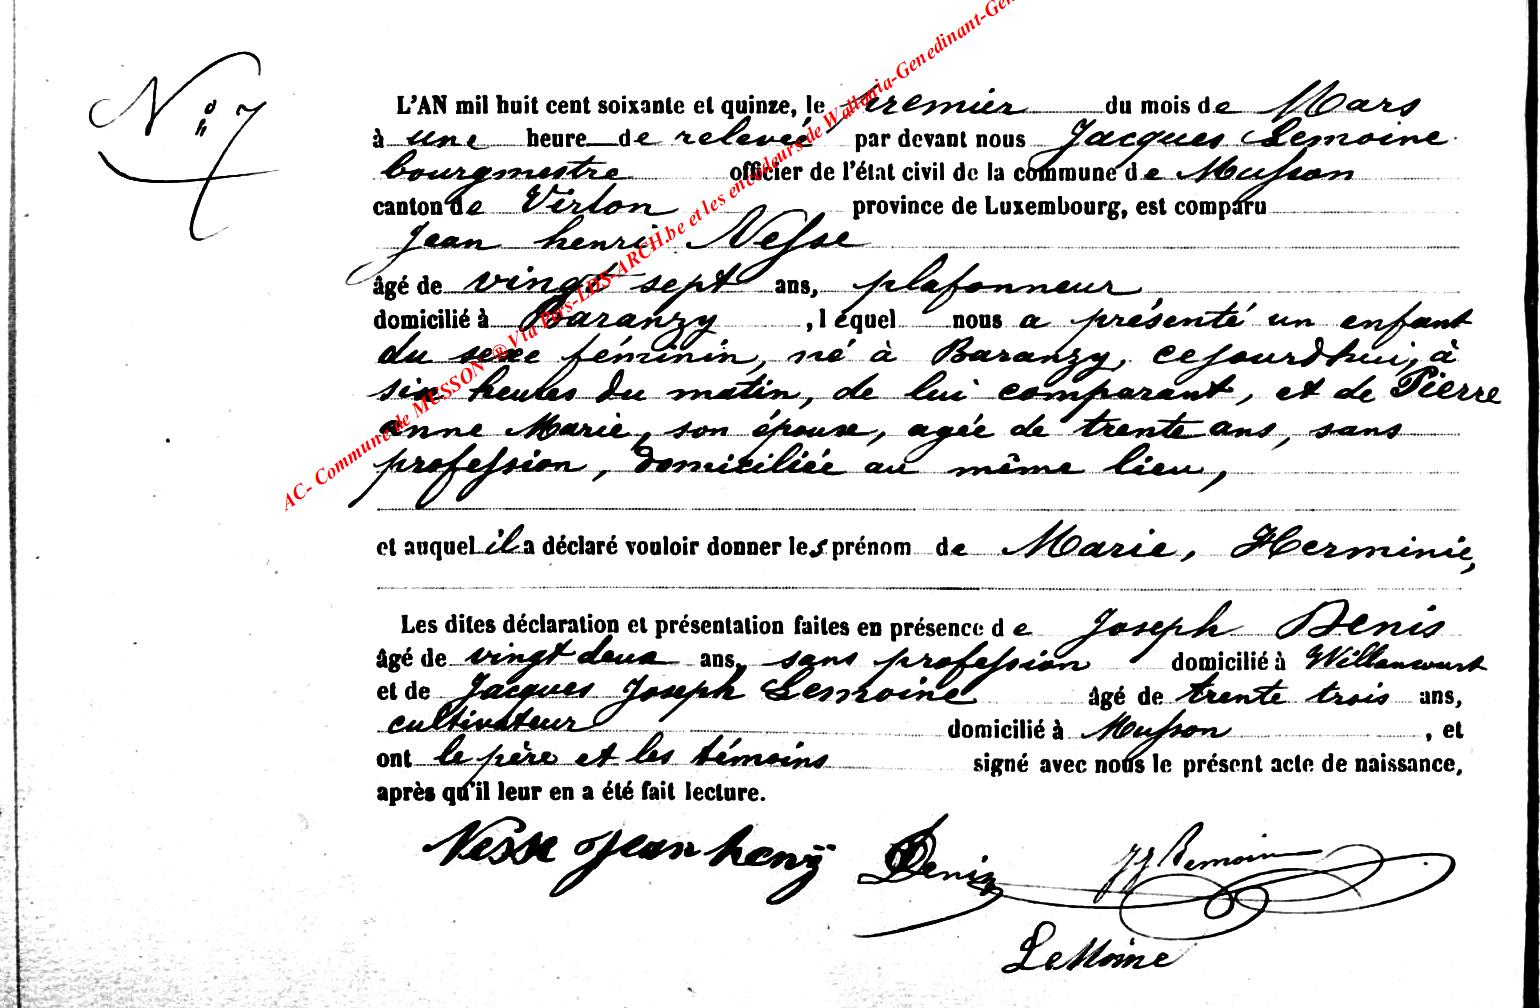 N° 7
L'AN mil huit cent soixante et quinze, le premier du mois de Mars
à une heure de relevée par devant nous Jacques Lemoine
bourgmestre officier de l'état civil de la commune de Musson
canton de Virton province de Luxembourg, est comparu
Jean henri Nesse
âgé de vingt sept ans, plafonneur
domicilié à Baranzy, lequel nous a présenté un enfant
du sexe féminin, né à Baranzy, cejourd'hui, à
six heures du matin, de lui comparant, et de Pierre
anne Marie, son épouse, agée de trente ans, sans
profession, domiciliée au même lieu,
et auquel il a déclaré vouloir donner les prénom de Marie, Herminie,
Les dites déclaration et présentation faites en présence de Joseph Denis
âgé de vingt deux ans, sans profession domicilié à Willancourt
et de Jacques Joseph Lemoine âgé de trente trois ans,
cultivateur domicilié à Musson, et
ont le père et les témoins signé avec nous le présent acte de naissance,
après qu'il leur en a été fait lecture.
Nesse Jean henry Denis JJ Lemoine
LeMoine
AC- Commune de MUSSON ® Via Pers-LDS-ARCH.be et les encodeurs de Wallonia-Genedinant-Gen